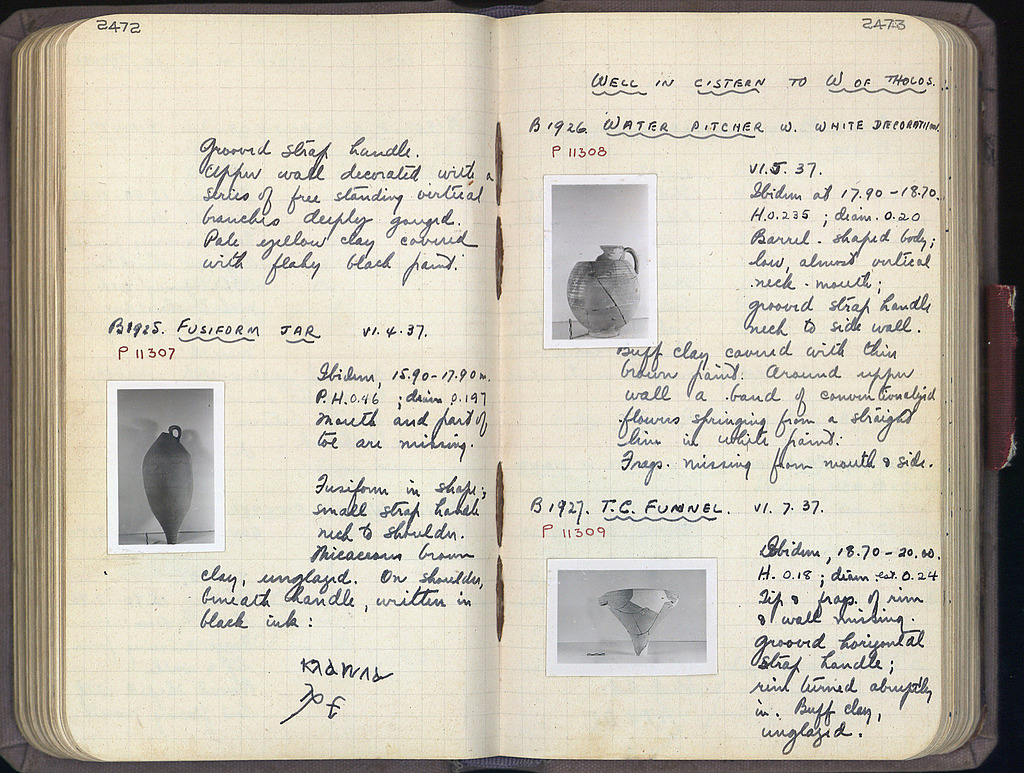 2472
Grooved strap handle.
Upper wall decorated with a
series of free standing vertical
branches deeply gouged.
Pale yellow clay covered
with flaky black paint.
B1925. FUSIFORM JAR VI.4.37.
P 11307
Ibidem, 15.90-17.90 m.
P.H. 0.46 ; diam 0.197
Mouth and part of
toe are missing.
Fusiform in shape;
small strap handle
neck to shoulder.
Micaceous brown
clay, unglazed. On shoulder,
beneath handle, written in
black ink:
2473
WELL IN CISTERN TO W OF THOLOS.
B1926. WATER PITCHER W. WHITE DECORATION.
P 11308
VI.5.37.
Ibidem at 17.90-18.70.
H.0.235 ; diam. 0.20
Barrel-shaped body;
low, almost vertical
neck-mouth;
grooved strap handle
neck to side wall.
Buff clay covered with thin
brown paint. Around upper
wall a band of conventionalized
flowers springing from a straight
line in white paint.
Frags. missing from mouth & side.
B1927. T.C. FUNNEL. VI.7.37.
P 11309
Ibidem, 18.70-20.00.
H. 0.18 ; diam. est. 0.24
Tip & frags. of rim
& wall missing.
Grooved horizontal
strap handle;
rim turned abruptly
in. Buff clay,
unglazed.